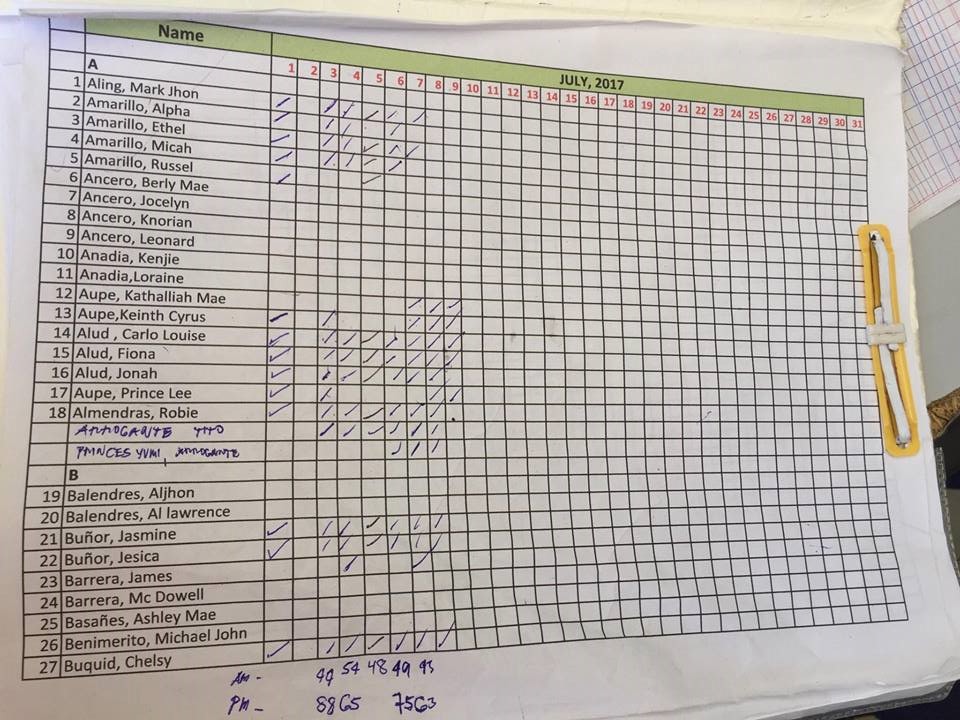 Name
JULY, 2017
A
1 2 3 4 5 6 7 8 9 10 11 12 13 14 15 16 17 18 19 20 21 22 23 24 25 26 27 28 29 30 31
1 Aling, Mark Jhon
2 Amarillo, Alpha
3 Amarillo, Ethel
4 Amarillo, Micah
5 Amarillo, Russel
6 Ancero, Berly Mae
7 Ancero, Jocelyn
8 Ancero, Knorian
9 Ancero, Leonard
10 Anadia, Kenjie
11 Anadia,Loraine
12 Aupe, Kathalliah Mae
13 Aupe,Keinth Cyrus
14 Alud , Carlo Louise
15 Alud, Fiona
16 Alud, Jonah
17 Aupe, Prince Lee
18 Almendras, Robie
B
19 Balendres, Aljhon
20 Balendres, Al lawrence
21 Buñor, Jasmine
22 Buñor, Jesica
23 Barrera, James
24 Barrera, Mc Dowell
25 Basañes, Ashley Mae
26 Benimerito, Michael John
27 Buquid, Chelsy
AM - 54 48 49
PM - 88 65 75 63